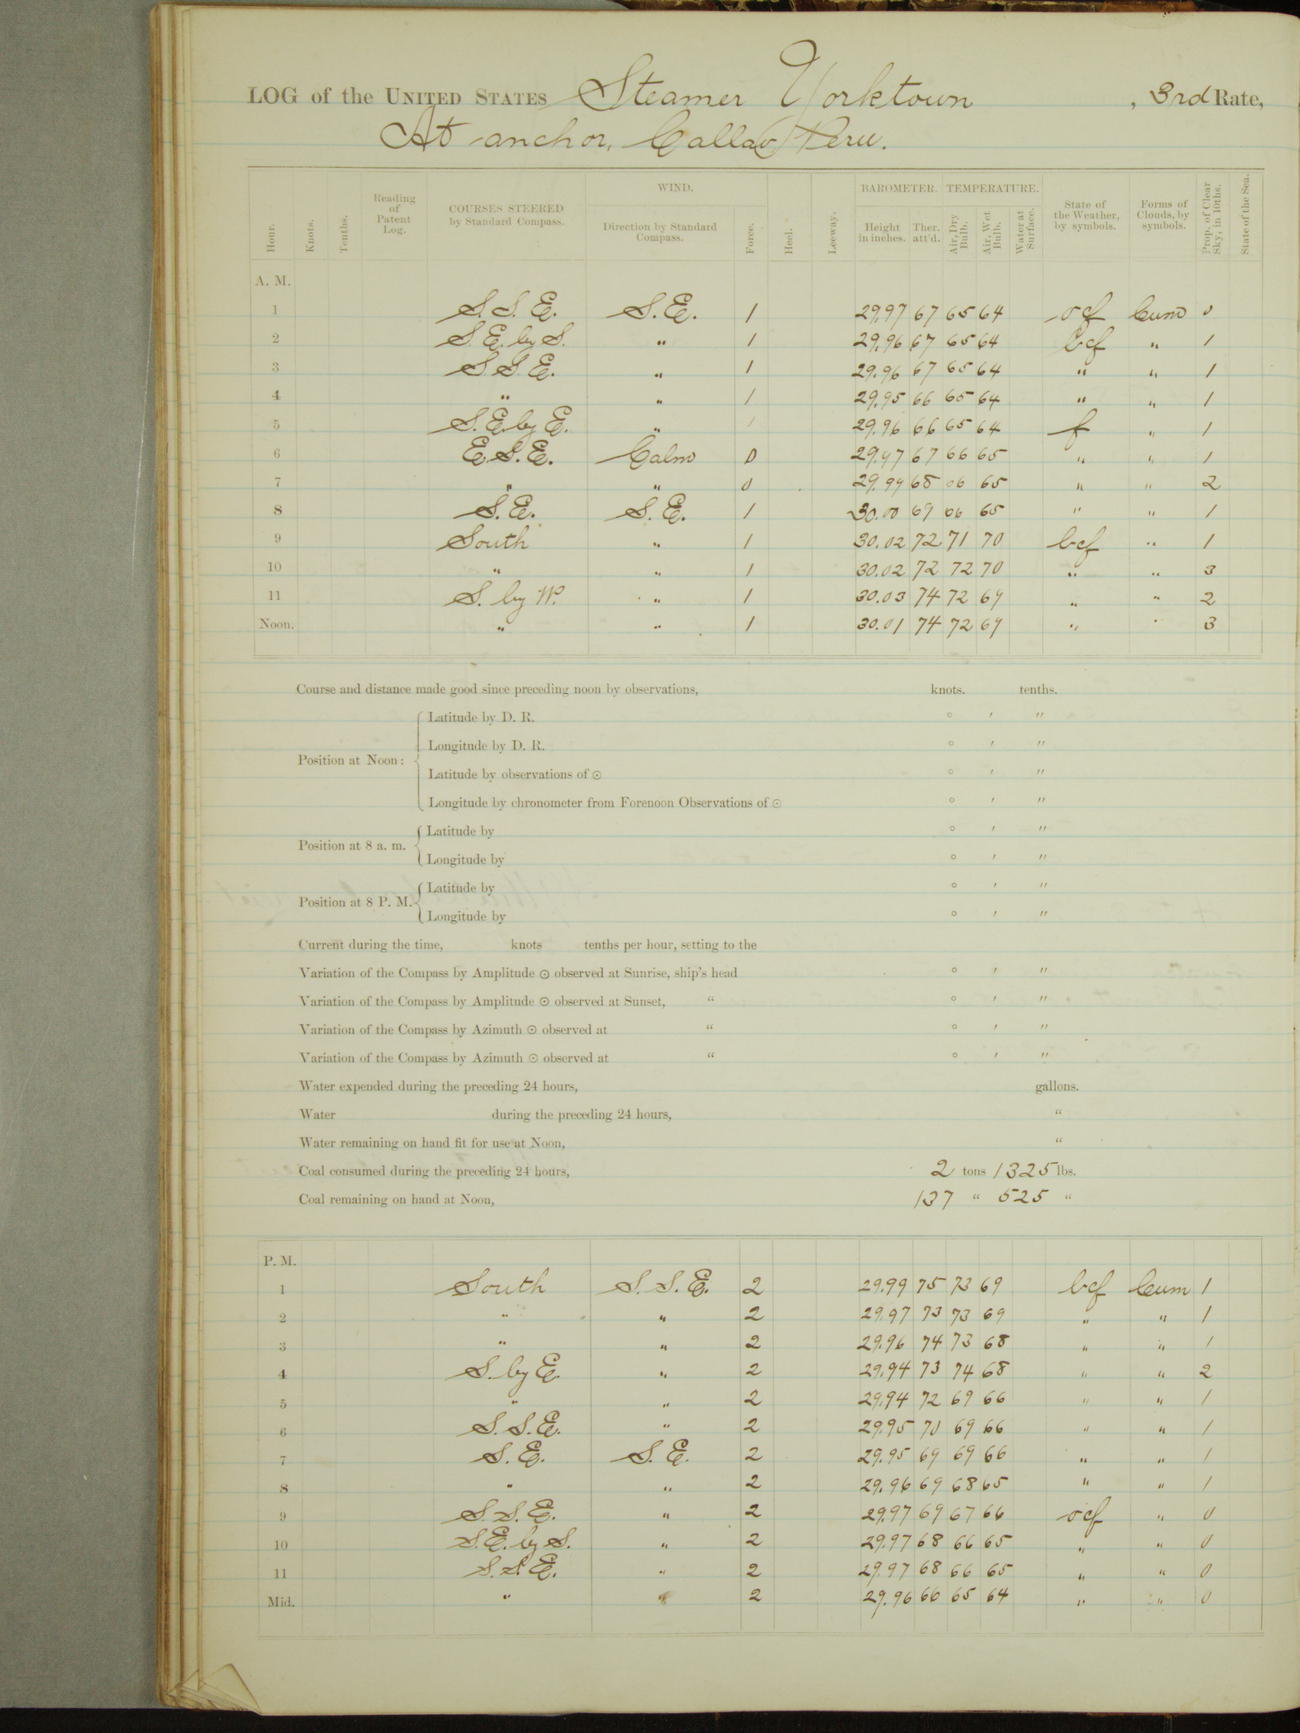 LOG of the UNITED STATES Steamer Yorktown , 3rd Rate,
At anchor, Callao, Peru.
Hour. Knots. Tenths. Reading of Patent Log. COURSES STEERED by Standard Compass. WIND. Direction by Standard Compass. Force. Heel. Leeway. BAROMETER. Height in inches. Ther. att'd. TEMPERATURE. Air, Dry Bulb. Air, Wet Bulb. Water at Surface. State of the Weather, by symbols. Forms of Clouds, by symbols. Prop. of Clear Sky, in 10ths. State of the Sea.
A. M.
1 S.S.E. S.E. 1 29.97 67 65 64 ocf Cum 0
2 S.E. by S. " 1 29.96 67 65 64 bcf " 1
3 S.S.E. " 1 29.96 67 65 64 " " 1
4 " " 1 29.95 66 65 64 " " 1
5 S.E. by E. " 1 29.96 66 65 64 f " 1
6 E.S.E. Calm 0 29.97 67 66 65 " " 1
7 " " 0 29.99 68 66 65 " " 2
8 S.E. S.E. 1 30.00 69 66 65 " " 1
9 South " 1 30.02 72 71 70 bcf " 1
10 " " 1 30.02 72 72 70 " " 3
11 S. by W. " 1 30.03 74 72 69 " " 2
Noon. " " 1 30.01 74 72 69 " " 3
Course and distance made good since preceding noon by observations, knots. tenths.
Position at Noon: Latitude by D. R. ° ′ ″
Longitude by D. R. ° ′ ″
Latitude by observations of ☉ ° ′ ″
Longitude by chronometer from Forenoon Observations of ☉ ° ′ ″
Position at 8 a. m. Latitude by ° ′ ″
Longitude by ° ′ ″
Position at 8 P. M. Latitude by ° ′ ″
Longitude by ° ′ ″
Current during the time, knots tenths per hour, setting to the
Variation of the Compass by Amplitude ☉ observed at Sunrise, ship's head ° ′ ″
Variation of the Compass by Amplitude ☉ observed at Sunset, " ° ′ ″
Variation of the Compass by Azimuth ☉ observed at " ° ′ ″
Variation of the Compass by Azimuth ☉ observed at " ° ′ ″
Water expended during the preceding 24 hours, gallons.
Water during the preceding 24 hours, "
Water remaining on hand fit for use at Noon, "
Coal consumed during the preceding 24 hours, 2 tons 1325 lbs.
Coal remaining on hand at Noon, 137 " 525 "
P. M.
1 South S.S.E. 2 29.99 75 73 69 bcf Cum 1
2 " " 2 29.97 73 73 69 " " 1
3 " " 2 29.96 74 73 68 " " 1
4 S. by E. " 2 29.94 73 74 68 " " 2
5 " " 2 29.94 72 69 66 " " 1
6 S.S.E. " 2 29.95 70 69 66 " " 1
7 S.E. S.E. 2 29.95 69 69 66 " " 1
8 " " 2 29.96 69 68 65 " " 1
9 S.S.E. " 2 29.97 69 67 66 ocf " 0
10 S.E. by S. " 2 29.97 68 66 65 " " 0
11 S.S.E. " 2 29.97 68 66 65 " " 0
Mid. " " 2 29.96 66 65 64 " " 0